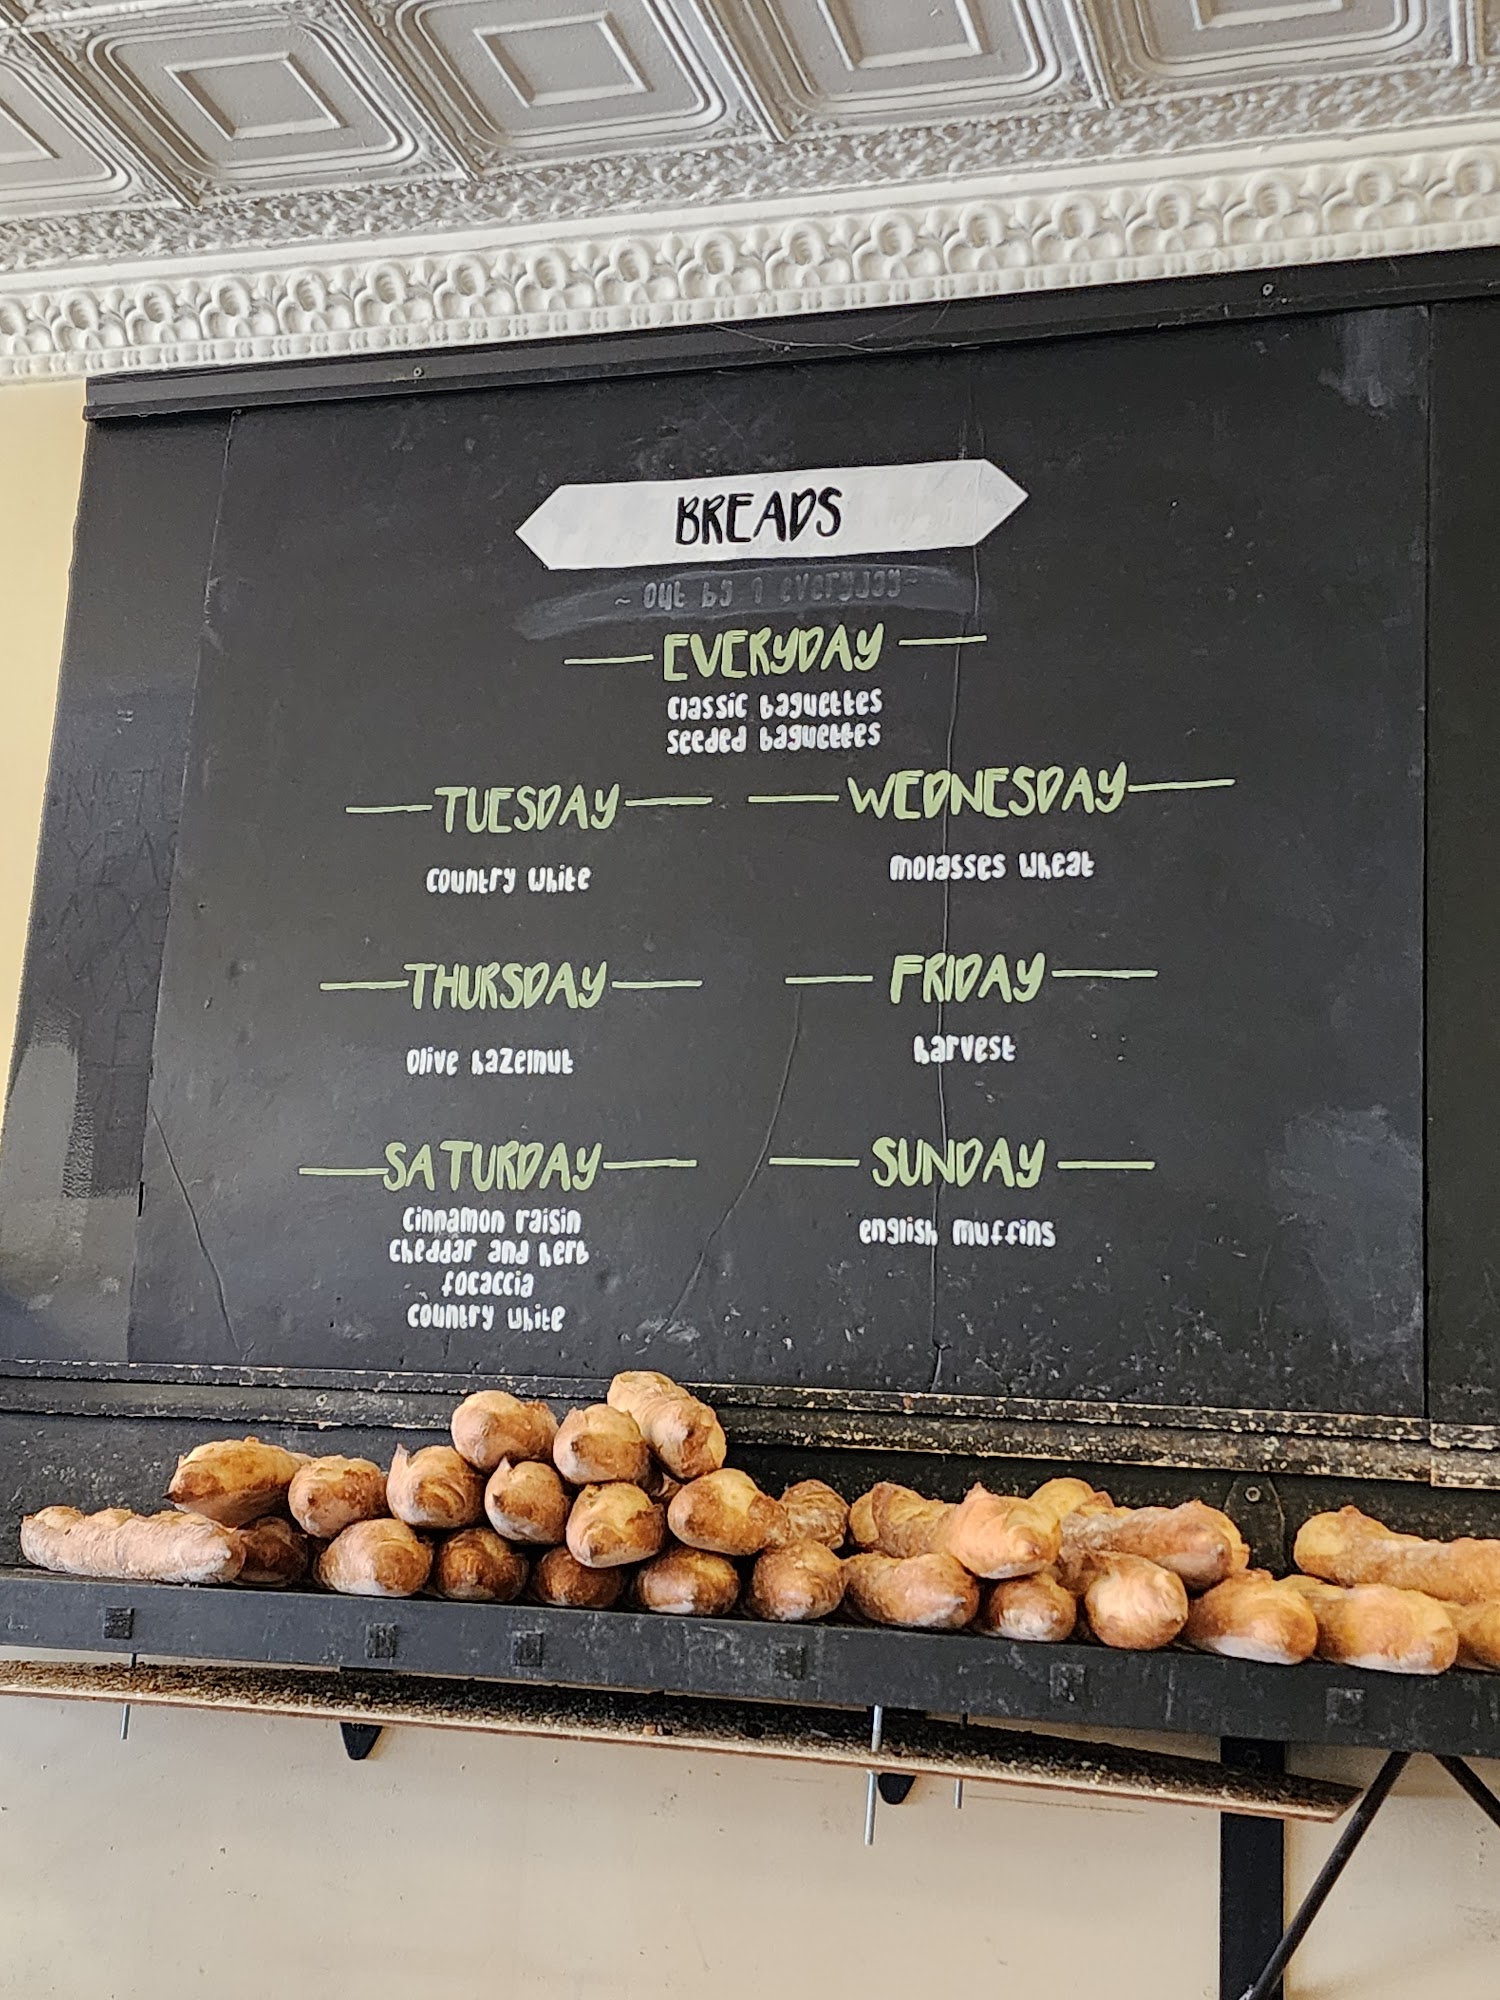 BREADS
~ out by 9 everyday ~
EVERYDAY
classic baguettes
seeded baguettes
TUESDAY
country white
WEDNESDAY
molasses wheat
THURSDAY
olive hazelnut
FRIDAY
harvest
SATURDAY
cinnamon raisin
cheddar and herb
focaccia
country white
SUNDAY
english muffins